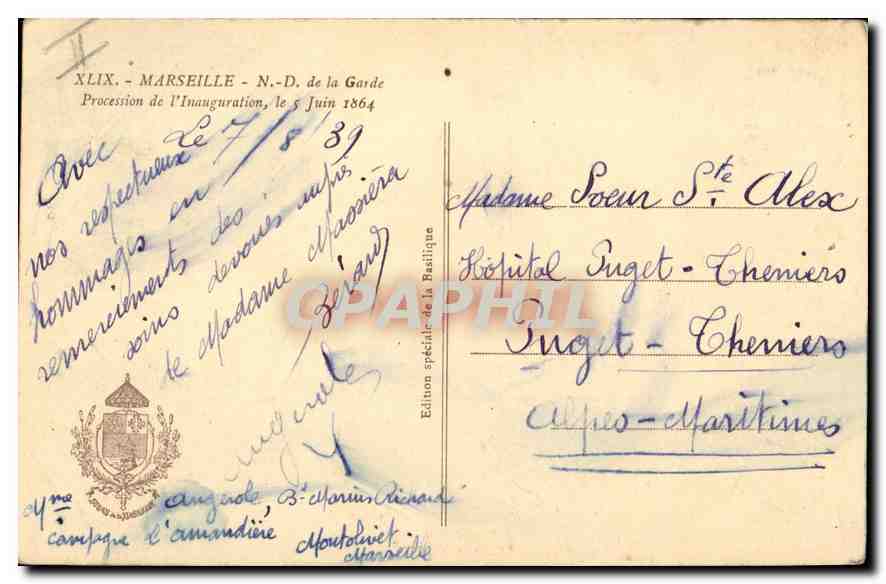 II
XLIX. - MARSEILLE - N.-D. de la Garde
Procession de l'Inauguration, le 5 Juin 1864
Le 7/8 39
Avec
nos respectueux
hommages en
remerciements des
soins devoues auprès
de Madame Massièra
Bérard
Angerole
Mme Angerole, Bd Marius Richard
Campagne l'amandière
Montolivet
Marseille
Edition spéciale de la Basilique
Madame Soeur Ste Alex
Hôpital Puget-Theniers
Puget-Theniers
Alpes-Maritimes
CPAPHIL